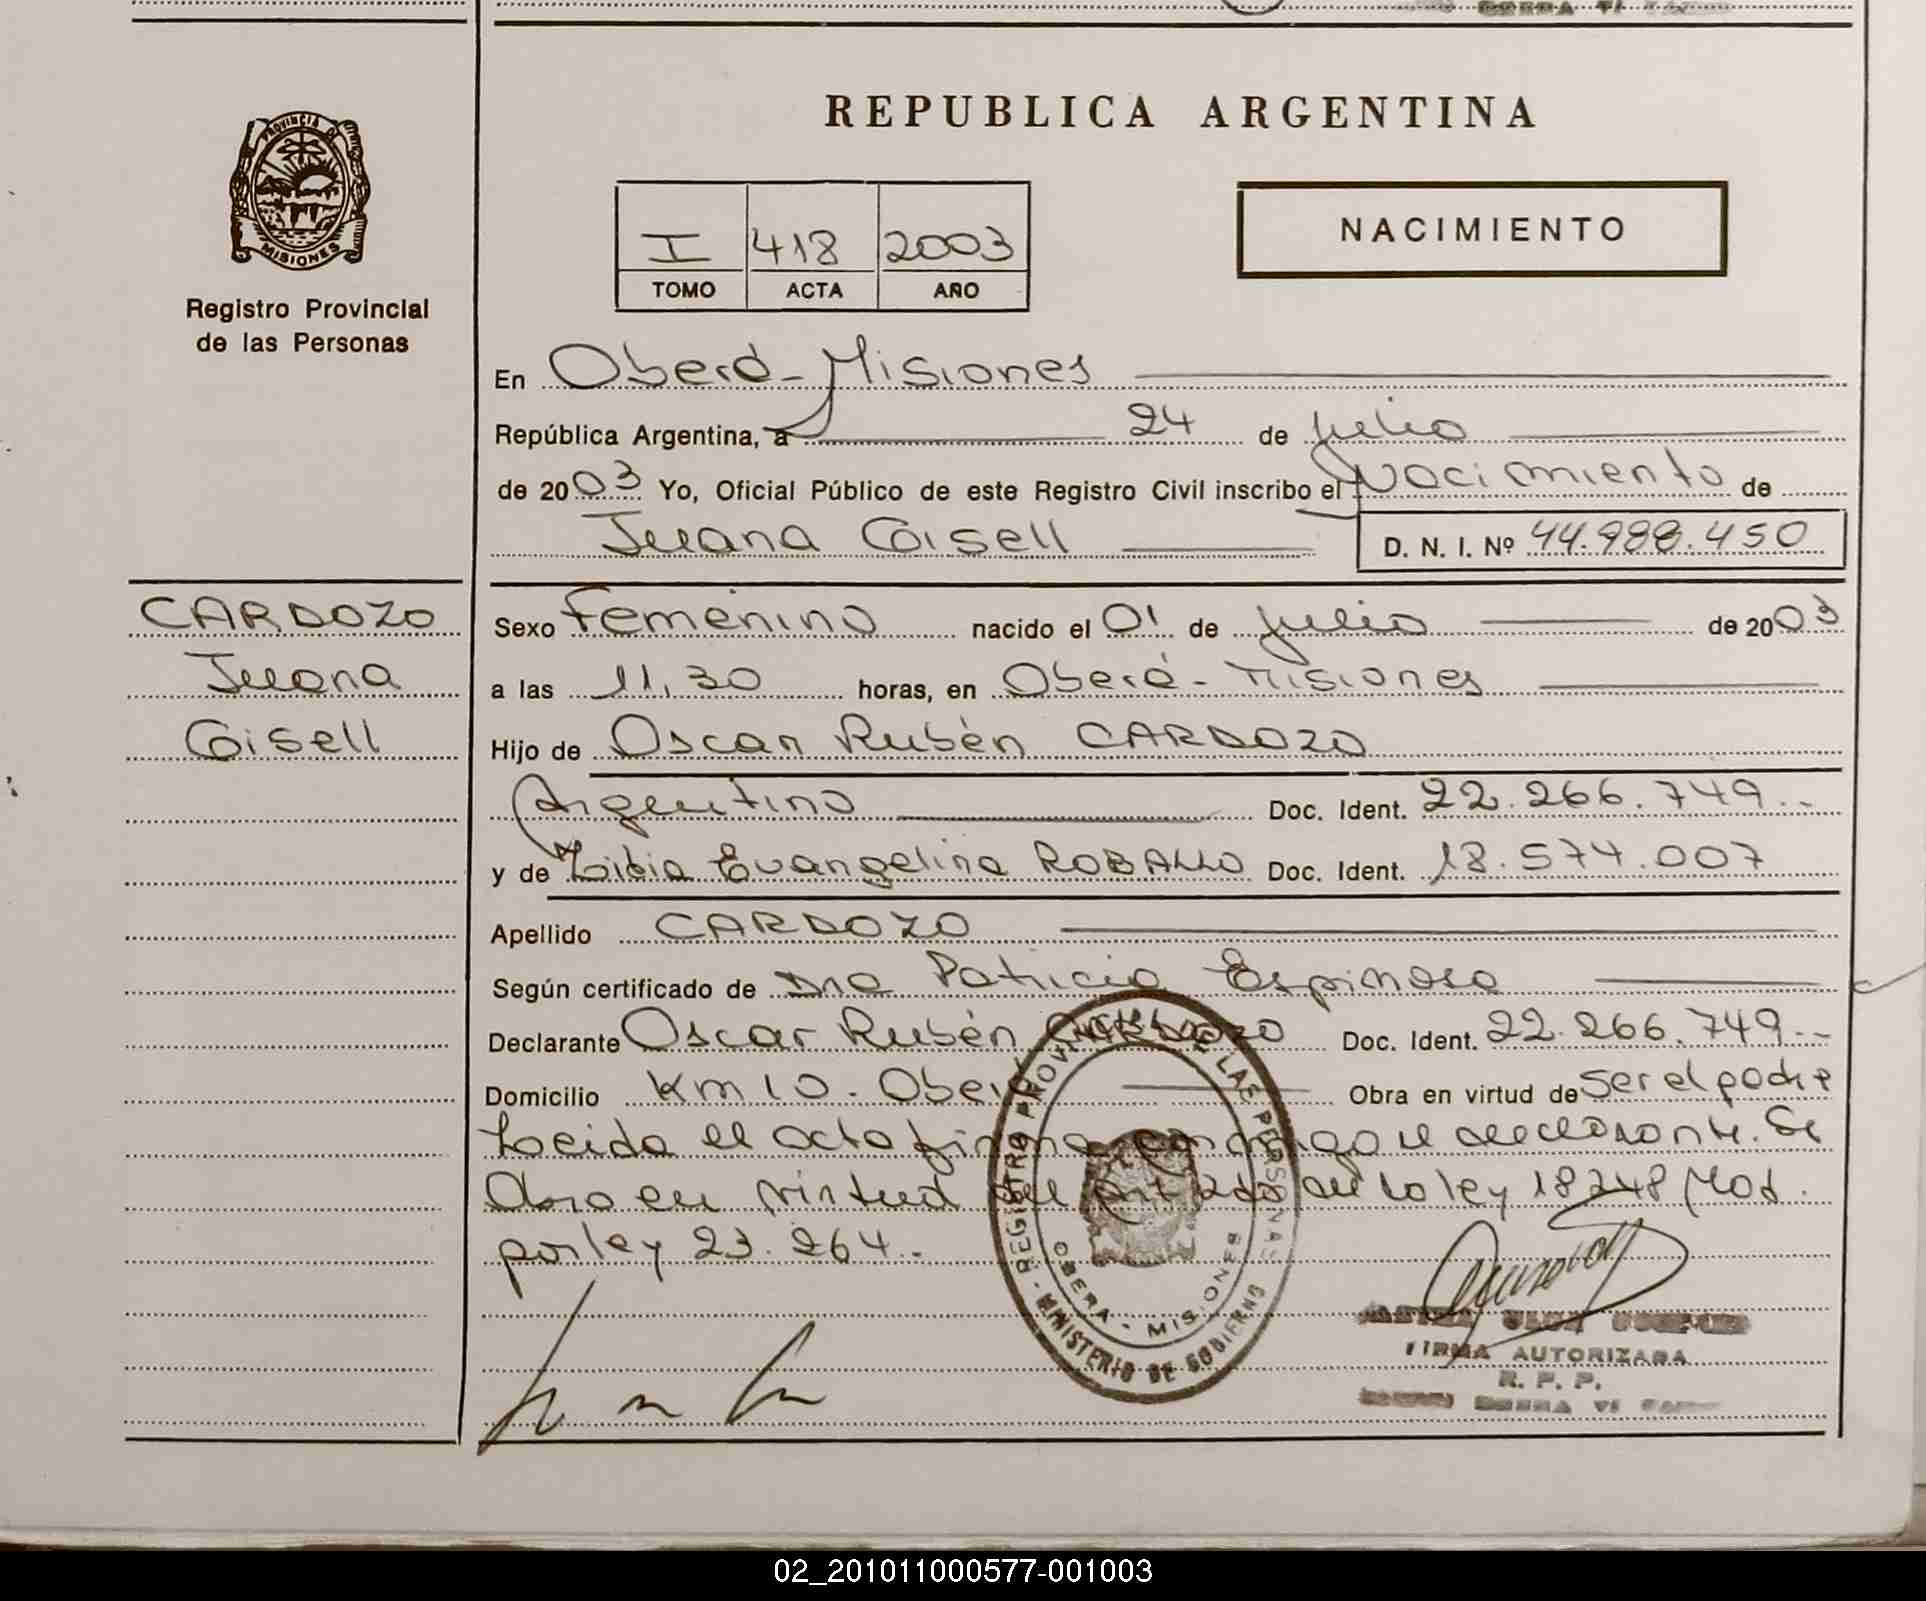 REPUBLICA ARGENTINA
PROVINCIA DE
MISIONES
Registro Provincial
de las Personas
I 418 2003
TOMO ACTA AÑO
NACIMIENTO
En Oberá - Misiones
República Argentina, a 24 de julio
de 2003 Yo, Oficial Público de este Registro Civil inscribo el Nacimiento de
Juana Gisell D. N. I. Nº 44.988.450
CARDOZO
Juana
Gisell
Sexo Femenino nacido el 01 de julio de 2003
a las 11,30 horas, en Oberá - Misiones
Hijo de Oscar Rubén CARDOZO
Argentino Doc. Ident. 22.266.749.-
y de Lidia Evangelina ROBALLO Doc. Ident. 18.574.007
Apellido CARDOZO
Según certificado de Dra Patricia Espinosa
Declarante Oscar Rubén CARDOZO Doc. Ident. 22.266.749.-
Domicilio Km 10 - Oberá Obra en virtud de ser el padre
Leida el acta firma conmigo el declarante. Se
Obra en virtud del art 2do de la ley 18248 Mod.
por ley 23.264.-
REGISTRO PROVINCIAL DE LAS PERSONAS
OBERA - MISIONES
MINISTERIO DE GOBIERNO
FIRMA AUTORIZADA
R. P. P.
02_201011000577-001003